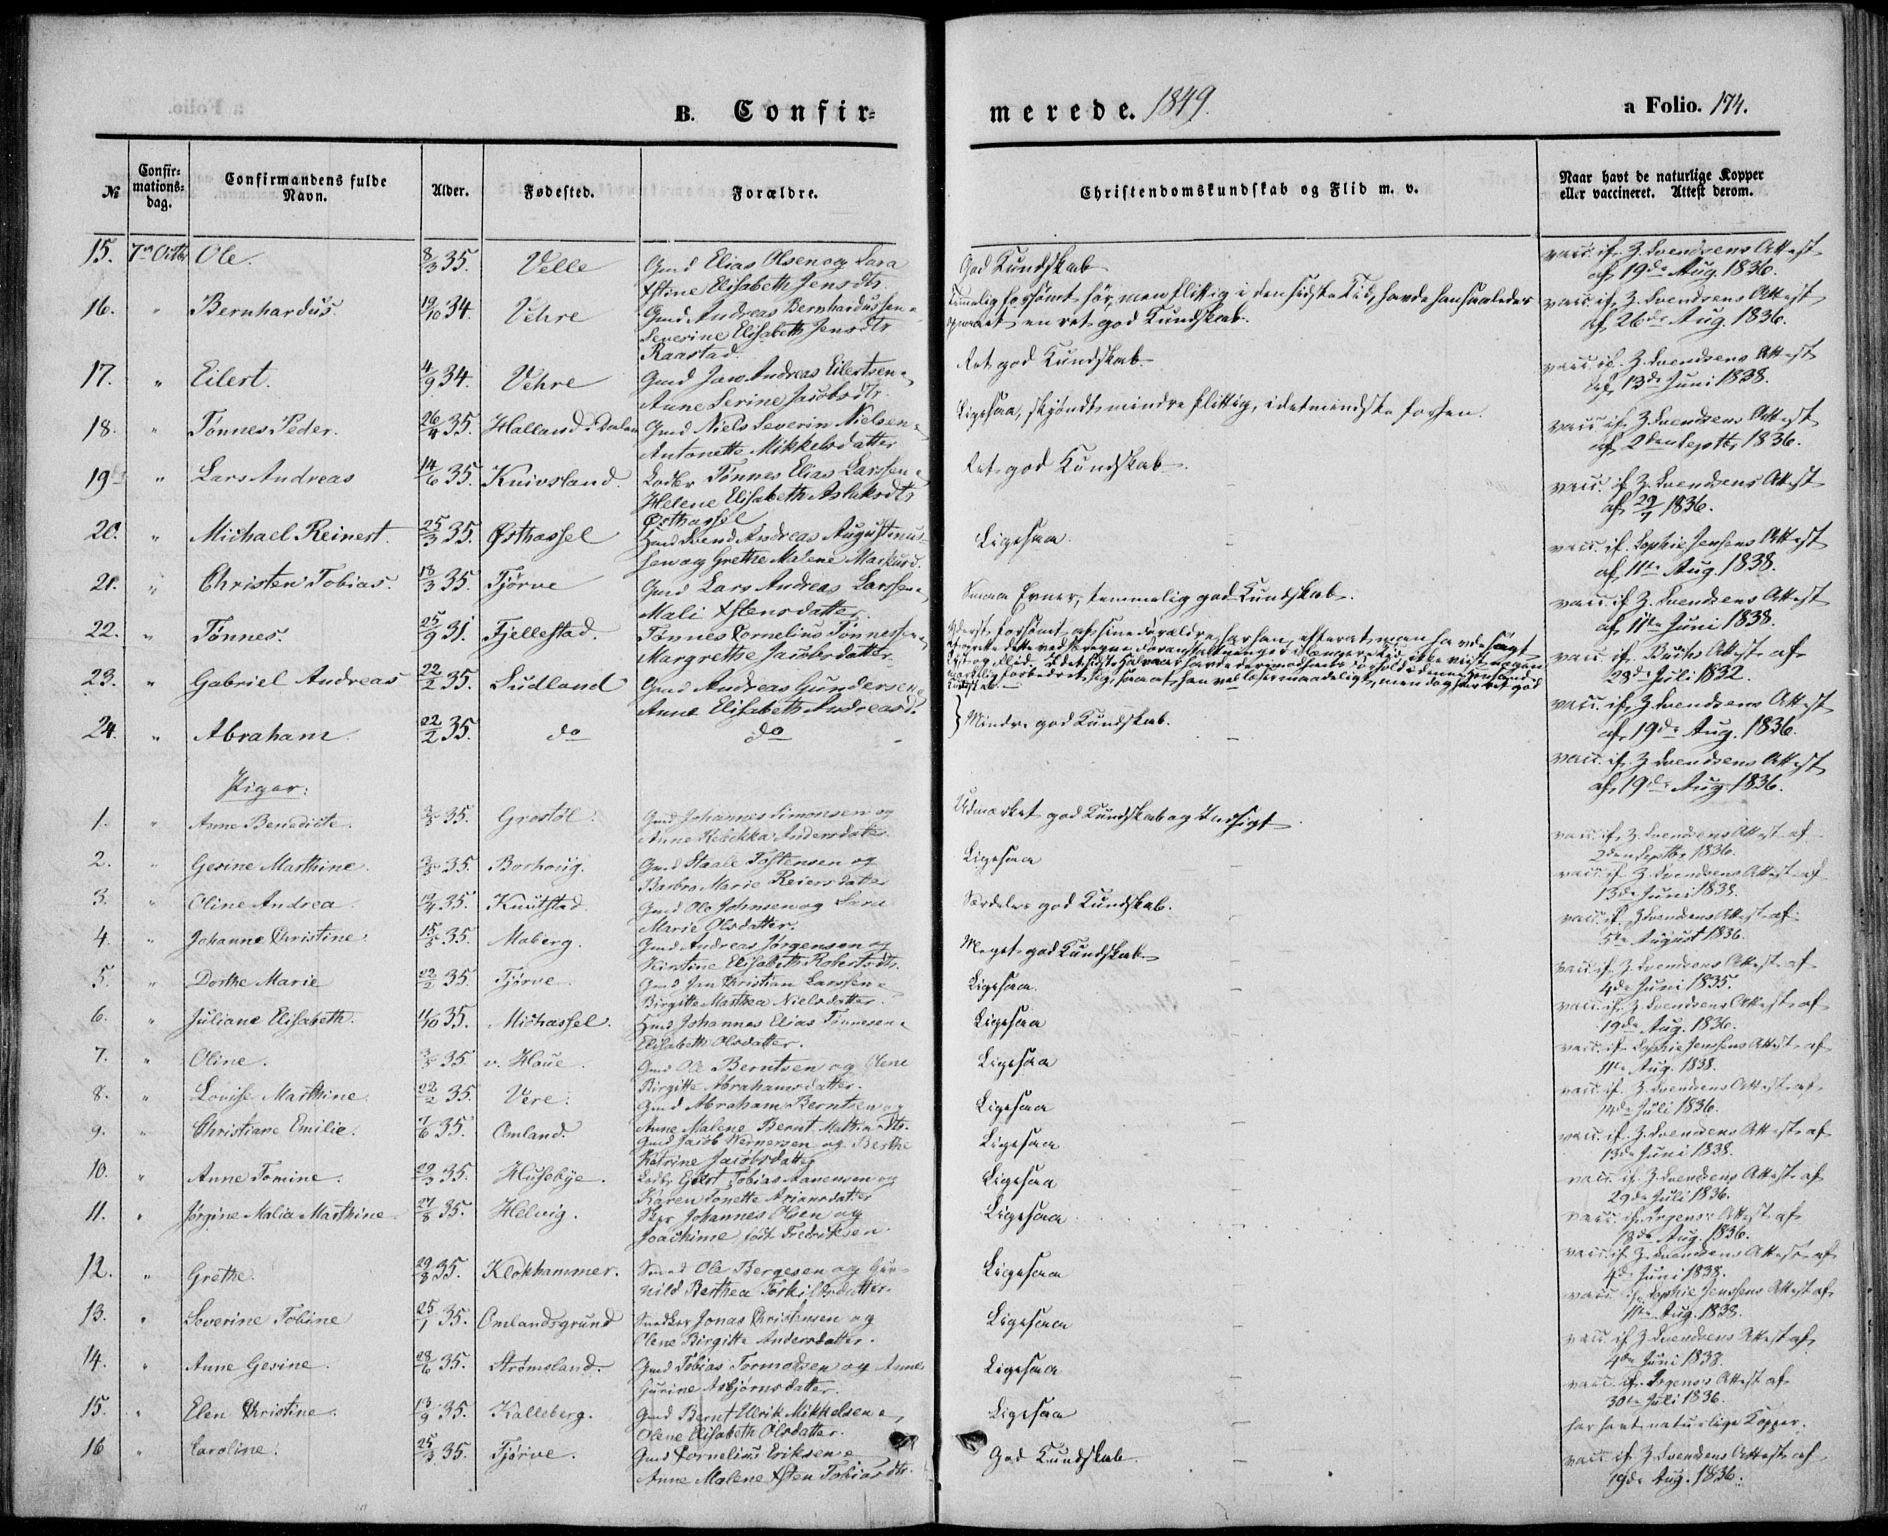 B. Confir=
merede. 1849.
a Folio. 174.
№ Confir=mations=dag. Confirmandens fulde Navn. Alder. Fødested. Forældre. Christendomskundskab og Flid m. v. Naar havt de naturlige Kopper eller vaccineret. Attest derom.
15. 7de Octbr Ole. 8/3 35. Velle Gmd Elias Olsen og Sara God Kundskab vacc. if. Z. Svendsens Attest
Stine Elisabeth Jensdtr. af 19de Aug. 1836.
16. " Bernhardus 19/10 34. Vehre Gmd Andreas Bernhardussen Temmelig forsømt før, men flittig i den sidste Tid, havde han saaledes vacc. if. Z. Svendsens Attest
Severine Elisabeth Jensdtr en ret god Kundskab. af 26de Aug. 1836.
Raastad.
17. " Eilert. 4/9 34. Vehre Gmd Jan Andreas Eilertsen Ret god Kundskab vacc. if. Z. Svendsens Attest
Anne Serine Jacobsdtr. af 13de Juni 1838.
18. " Tønnes Peder. 26/4 35. Halland Gmd Niels Severin Nielsen Ligesaa, skjøndt mindre flittig, i det mindste forhen. vacc. if. Z. Svendsens Attest
Antonette Mikkelsdatter af 2den Septbr 1836.
19 " Lars Andreas 14/6 35. Knivsland. Tønnes Elias Larssen Ret god Kundskab. vacc. if. Z. Svendsens Attest
Helene Elisabeth Aslaksdtr af 29/7 1836.
Østhassel
20. " Michael Reinert. 25/3 35. Østhassel Svend Andreas Augustinus- Ligesaa vacc. if. Sophie Jensens Attest
sen og Grethe Malene Markusd. af 11te Aug. 1838.
21. " Christen Tobias. 18/3 35. Tjørve Gmd Lars Andreas Larssen Evner, temmelig god Kundskab. vacc. if. Z. Svendsens Attest
Mali Stensdatter af 11te Juni 1838.
22. " Tønnes. 25/9 31. Fjellestad. Tønnes Cornelius Tønnessen Yderst forsømt af sine Forældre, har han, efterat man havde søgt vacc. if. Attest af
Margrethe Jacobsdatter 28de Juli 1832.
23. " Gabriel Andreas 22/2 35. Ludland Gmd Andreas Gundersen vacc. if. Z. Svendsens Attest
Anne Elisabeth Andreasd. af 19de Aug. 1836.
24. " Abraham 22/2 35. do do } Mindre god Kundskab. vacc. if. Z. Svendsens Attest
af 19de Aug. 1836.
Piger:
1. " Anne Benedicte. 3/3 35. Grostøl. Gmd Johannes Simonsen og Udmærket god Kundskab og Indsigt vacc. if. Z. Svendsens Attest af
Anne Rebekka Andersdatter 2den Septbr 1836.
2. " Gesine Marthine. 35. Borhoug. Gmd Staale Tostensen og Ligesaa vacc. if. Z. Svendsens Attest af
Barbro Marie Reiersdatter 13de Juni 1838.
3. " Oline Andrea 19/4 35. Knudstad Gmd Ole Johnsen og Sara Særdeles god Kundskab. vacc. if. Z. Svendsens Attest af
Marie Olsdatter. 5te August 1836.
4. " Johanne Christine. 15/3 35. Moberg. Gmd Andreas Jørgensen og Meget god Kundskab vacc. if. Z. Svendsens Attest af
Kirstine Elisabeth Robertsdtr. 4de Juni 1835.
5. " Dorthe Marie 22/2 35. Tjørve. Gmd Jan Christian Larssen Ligesaa. vacc. if. Z. Svendsens Attest af
Birgitte Marthea Nielsdatter. 19de Aug. 1836.
6. " Juliane Elisabeth. 11/10 35. Midhassel. Johannes Elias Tønnesen Ligesaa vacc. if. Sophie Jenssens Attest af
Elisabeth Olsdatter. 11te Aug. 1838.
7. " Oline. 35 v. Haue. Gmd Ole Berntsen og Olene Ligesaa vacc. if. Z. Svendsens Attest af
Birgitte Abrahamsdatter. 14de Juli 1836.
8. " Lovise Marthine 22/2 35. Vere. Gmd Abraham Berntsen og Ligesaa vacc. if. Z. Svendsens Attest af
Anne Malene Bernt dtr. 13de Juni 1838.
9. " Christiane Emilie. 7/6 35. Omland. Gmd Jacob Wernersen og Berthe Ligesaa vacc. if. Z. Svendsens Attest af
Katrine Jacobsdatter 29de Juli 1836.
10. " Anne Tomine. 29/3 35. Husebye. Tobias Aanensen og Ligesaa vacc. if. Attest af
Karen Tonette Ariansdatter 13de Aug. 1836.
11. " Jørgine Malia Marthine 27/8 35. Helvig. Johannes Olsen og Ligesaa
Joachime født Fredriksen.
12. " Grethe. 29/8 35. Klokhammer. Ole Bergesen og Gun- Ligesaa vacc. if. Z. Svendsens Attest af
nild Berthea Torkildsdatter. 4de Juni 1838.
13. " Severine Tobine 25/1 35. Omlandsgrund Jonas Christensen og Ligesaa vacc. if. Sophie Jenssens Attest af
Olene Birgitte Andersdatter. 11te Aug. 1838.
14. " Anne Gesine. 28/6 35. Strømsland. Gmd Tobias Tormodsen og Anne Ligesaa vacc. if. Z. Svendsens Attest af
Gurine Asbjørnsdatter. 4de Juni 1838.
15. " Elen Christine. 13/9 35. Kalleberg. Gmd Bernt Ulrik Mikkelsen Ligesaa vacc. if. Attest af 30te Juli 1836.
Olene Elisabeth Olsdatter. har havt naturlige Kopper.
16 " Caroline. 25/3 35. Tjørve. Gmd Cornelius Eriksen God Kundskab. vacc. if. Z. Svendsens Attest af
Anne Malene Sten Tobiasdtr. 19de Aug. 1836.